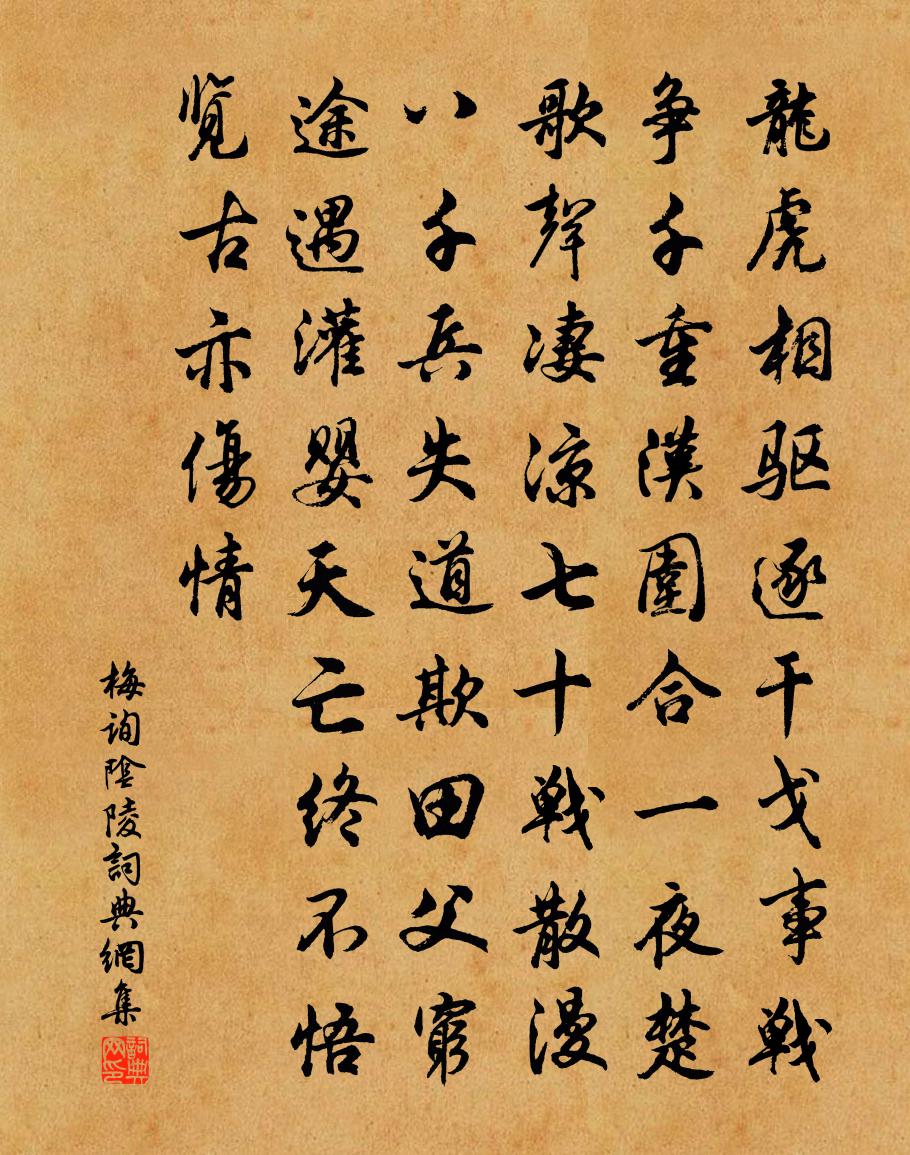 龍虎相驱逐干戈事戦
争千重漢圍合一夜楚
歌聲凄凉七十戦散漫
八千兵失道欺田父窮
途遇灌嬰天亡终不悟
覧古亦傷情
梅詢陰陵詞典網集
詞典网印